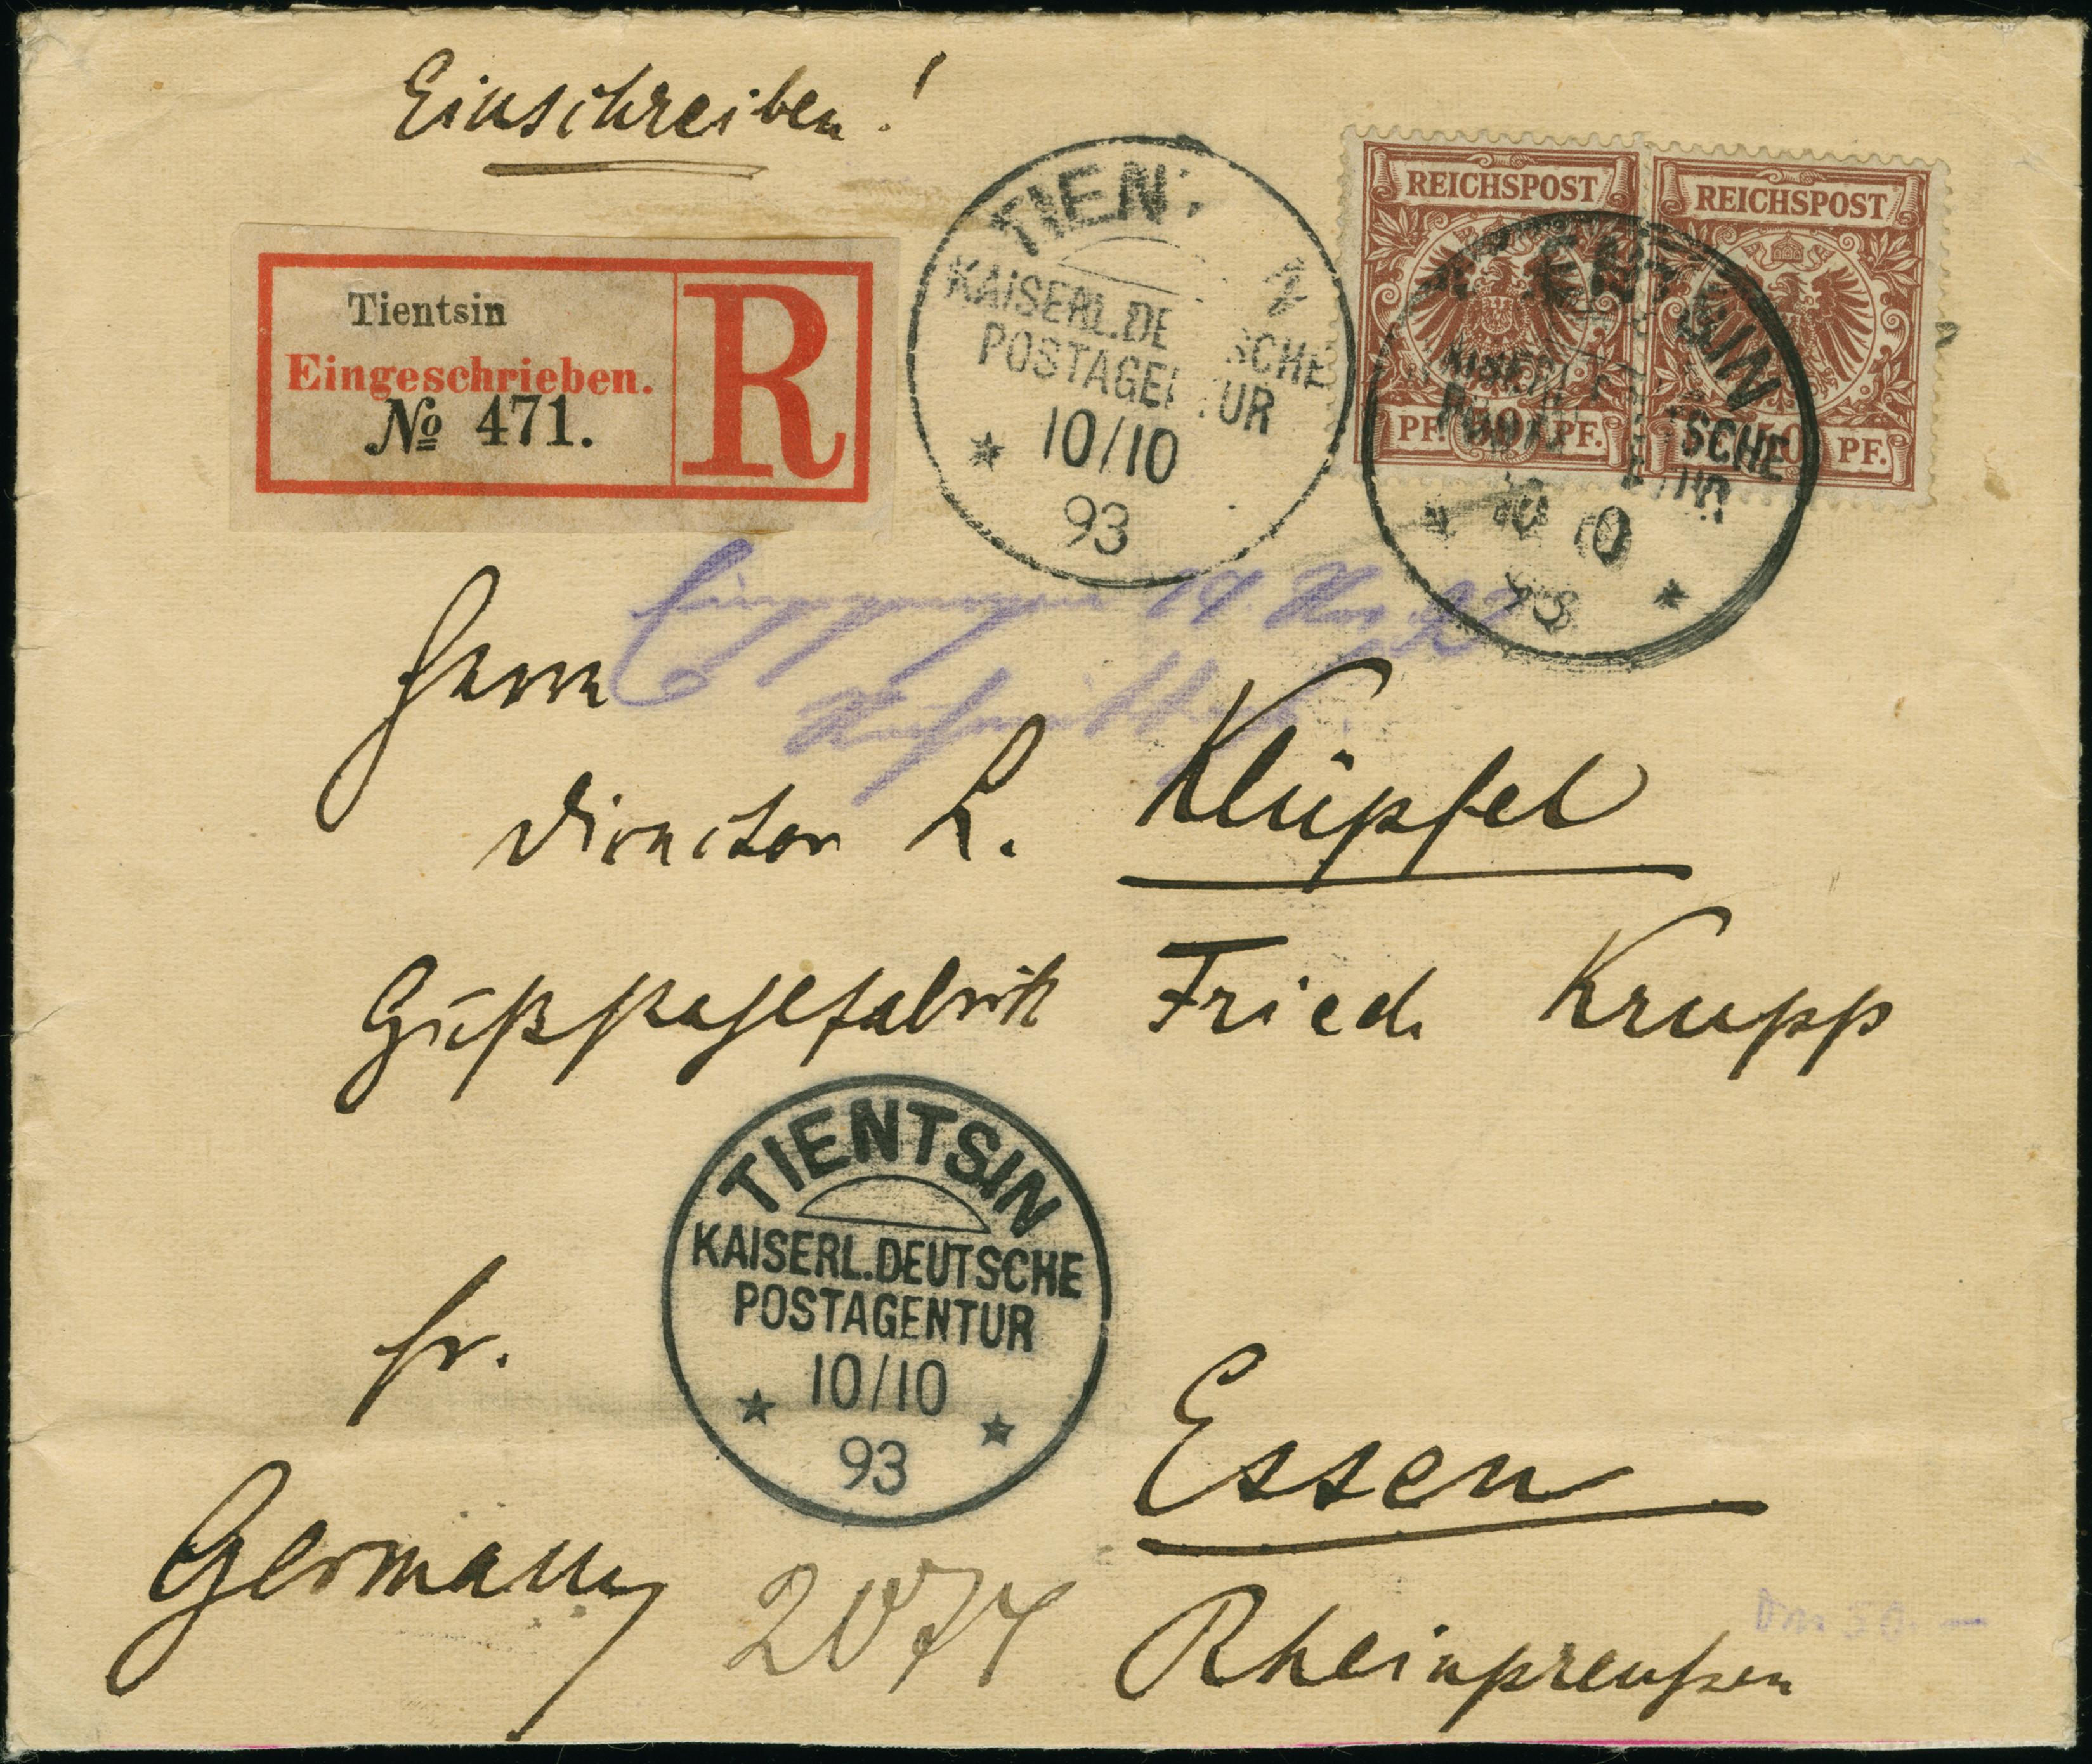 Einschreiben!
Tientsin
Eingeschrieben.
№ 471.
R
TIEN
KAISERL.DE SCHE
POSTAGE UR
10/10
93
REICHSPOST
PF. 50 PF.
REICHSPOST
50 PF.
TSIN
SCHE
Eingegangen 14. Nov 93
Herrn
Director L. Klüpfel
Gußstahlfabrik Fried. Krupp
TIENTSIN
KAISERL.DEUTSCHE
POSTAGENTUR
10/10
93
fr.
Essen
Germany
2074
Rheinpreußen